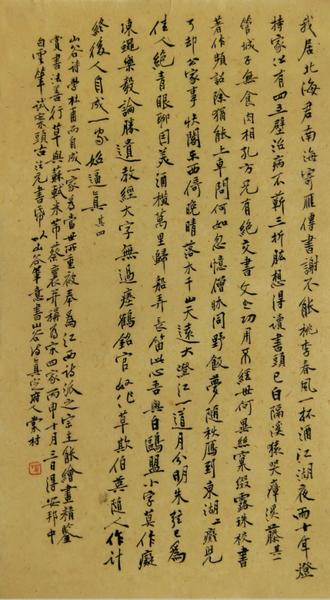 我居北海君南海寄雁傳書謝不能桃李春風一杯酒江湖夜雨十年燈
持家但有四立壁治病不蘄三折肱想得讀書頭已白隔溪猿哭瘴溪藤其一
管城子無食肉相孔方兄有絕交書文章功用不經世何異絲窠綴露珠校書
著作頻詔除猶能上車問何如忽憶僧牀同野飯夢隨秋雁到東湖二癡兒
了卻公家事快閣東西倚晚晴落木千山天遠大澄江一道月分明朱絃已為
佳人絕青眼聊因美酒橫萬里歸船弄長笛此心吾與白鷗盟小字莫作癡
凍蠅樂毅論勝遺教經大字無過瘞鶴銘官奴作草欺伯英隨人作計
終後人自成一家始逼真其四
山谷詩學杜甫而自成一家為當世所重被奉為江西詩派之宗主能繪畫精鑒
賞書法善行草與蘇軾米芾蔡襄并稱為宋四家丙申十月三日得安邦中
白雲筆試寫古法元書紙以山谷筆意書山谷詩真定府人雲村